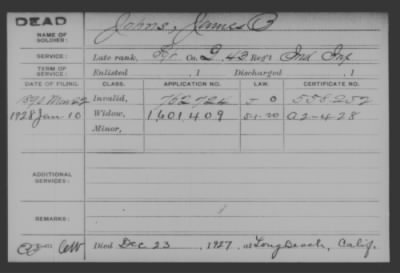 DEAD
NAME OF SOLDIER: Johns, James B
SERVICE: Late rank, Pvc Co. G, 43 Reg't Ind Inf
TERM OF SERVICE: Enlisted , 1 Discharged , 1
DATE OF FILING. CLASS. APPLICATION NO. LAW. CERTIFICATE NO.
Invalid, 762724 558257
1928 Jan 10 Widow, 1,601,409 5-1-20 A2-4-28
Minor,
ADDITIONAL SERVICES:
REMARKS:
Died Dec 23, 1927, at Long Beach, Calif.